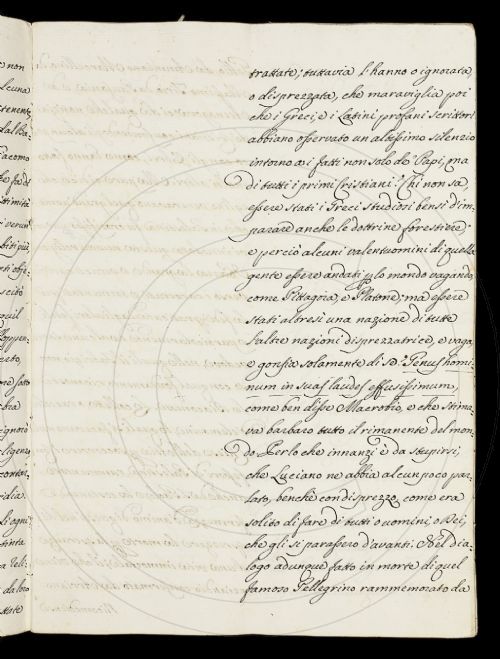 trattate; tuttavia l'hanno o ignorata
o disprezzata, che maraviglia poi
che i Greci, e i Latini profani scrittori
abbiano osservato un altissimo silenzio
intorno a i fatti non solo de' Papi, ma
di tutti i primi Cristiani? Chi non sa,
essere stati i Greci studiosi bensì d'im:
parare anche le dottrine forestiere
e perciò alcuni valentuomini di quella
gente essere andati p lo mondo vagando,
come Pittagora, e Platone; ma essere
stati altresì una nazione di tutte
l'altre nazioni disprezzatrice, e vaga,
e gonfia solamente di se? Genus homi:
num in suas laudes effusissimum,
come ben disse Macrobio, e che stima:
va barbaro tutto il rimanente del mon:
do. Perlo che innanzi è da stupirsi,
che Luciano ne abbia alcun poco par:
lato, benchè con disprezzo, come era
solito di fare di tutti o uomini, o Dei,
che gli si parassero d'avanti. Nel dia:
logo adunque fatto in morte di quel
famoso Pellegrino rammemorato da